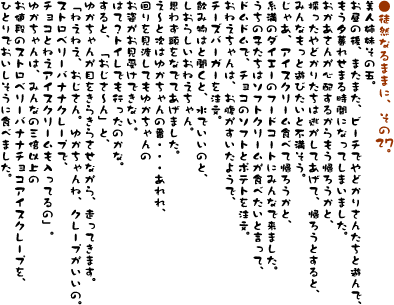 ●徒然なるままに、その27。
美人姉妹その五。
お昼の後、またまた、ビーチでやどかりさんたちと遊んで、
もう夕暮れせまる時間になってしまいました。
おかあさんが心配するからもう帰ろうかと、
採ったやどかりたちは逃がしてあげて、帰ろうとすると、
みんなもっと遊びたいと不満そう。
じゃあ、アイスクリーム食べて帰ろうかと、
糸満のダイエーのフードコートにみんなで来ました。
うちの子たちはソフトクリームが食べたいと言って、
ドムドムで、チョコのソフトとポテトを注文。
おねえちゃんは、お腹がすいたようで、
チーズバーガーを注文。
飲み物はと聞くと、水でいいのと、
しおらしいおねえちゃん。
思わず頭をなでてあげました。
え〜と次はゆかちゃんの番・・・あれれ、
回りを見渡してもゆかちゃんの
お姿がお見受けできない。
はて?トイレでも行ったのかな。
すると、「おじさ〜ん」と、
ゆかちゃんが目をきらきらさせながら、走ってきます。
「ねえねえ、おじさん。ゆかちゃんね、クレープがいいの。
ストロベリーバナナクレープで、
チョコとねえアイスクレームも入ってるの」。
ゆかちゃんは、みんなの三倍以上の
お値段のストロベリーバナナチョコアイスクレープを、
ひとりでおいしそうに食べました。